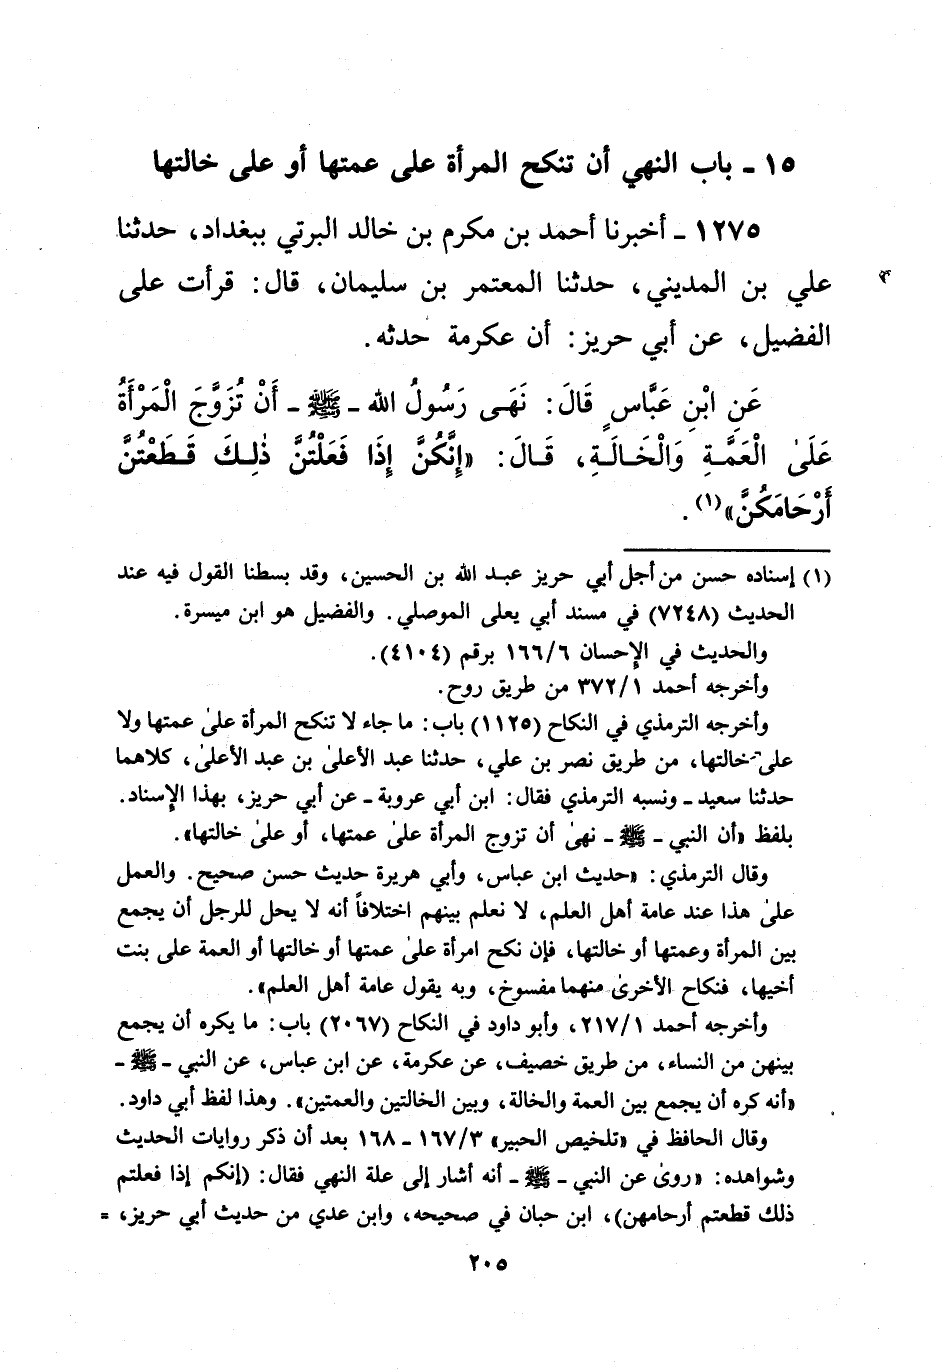 ١٥ ـ باب النهي أن تنكح المرأة على عمتها أو على خالتها
١٢٧٥ ـ أخبرنا أحمد بن مكرم بن خالد البرتي ببغداد، حدثنا
علي بن المديني، حدثنا المعتمر بن سليمان، قال: قرأت على
الفضيل، عن أبي حريز: أن عكرمة حدثه.
عَنِ ابْنِ عَبَّاسٍ قَالَ: نَهَى رَسُولُ الله ـ ﷺ ـ أَنْ تُزَوَّجَ الْمَرْأَةُ
عَلَىٰ الْعَمَّةِ وَالْخَالَةِ، قَالَ: «إِنَّكُنَّ إِذَا فَعَلْتُنَّ ذٰلِكَ قَطَعْتُنَّ
أَرْحَامَكُنَّ»(١).
(١) إسناده حسن من أجل أبي حريز عبد الله بن الحسين، وقد بسطنا القول فيه عند
الحديث (٧٢٤٨) في مسند أبي يعلى الموصلي. والفضيل هو ابن ميسرة.
والحديث في الإحسان ١٦٦/٦ برقم (٤١٠٤).
وأخرجه أحمد ٣٧٢/١ من طريق روح.
وأخرجه الترمذي في النكاح (١١٢٥) باب: ما جاء لا تنكح المرأة علىٰ عمتها ولا
على خالتها، من طريق نصر بن علي، حدثنا عبد الأعلىٰ بن عبد الأعلىٰ، كلاهما
حدثنا سعيد ـ ونسبه الترمذي فقال: ابن أبي عروبة ـ عن أبي حريز، بهذا الإسناد.
بلفظ «أن النبي ـ ﷺ ـ نهىٰ أن تزوج المرأة علىٰ عمتها، أو علىٰ خالتها».
وقال الترمذي: «حديث ابن عباس، وأبي هريرة حديث حسن صحيح. والعمل
علىٰ هذا عند عامة أهل العلم، لا نعلم بينهم اختلافاً أنه لا يحل للرجل أن يجمع
بين المرأة وعمتها أو خالتها، فإن نكح امرأة علىٰ عمتها أو خالتها أو العمة على بنت
أخيها، فنكاح الأخرىٰ منهما مفسوخ، وبه يقول عامة أهل العلم».
وأخرجه أحمد ٢١٧/١، وأبو داود في النكاح (٢٠٦٧) باب: ما يكره أن يجمع
بينهن من النساء، من طريق خصيف، عن عكرمة، عن ابن عباس، عن النبي ـ ﷺ ـ
«أنه كره أن يجمع بين العمة والخالة، وبين الخالتين والعمتين». وهذا لفظ أبي داود.
وقال الحافظ في «تلخيص الحبير» ١٦٧/٣ ـ ١٦٨ بعد أن ذكر روايات الحديث
وشواهده: «روىٰ عن النبي ـ ﷺ ـ أنه أشار إلى علة النهي فقال: (إنكم إذا فعلتم
ذلك قطعتم أرحامهن)، ابن حبان في صحيحه، وابن عدي من حديث أبي حريز، =
٢٠٥